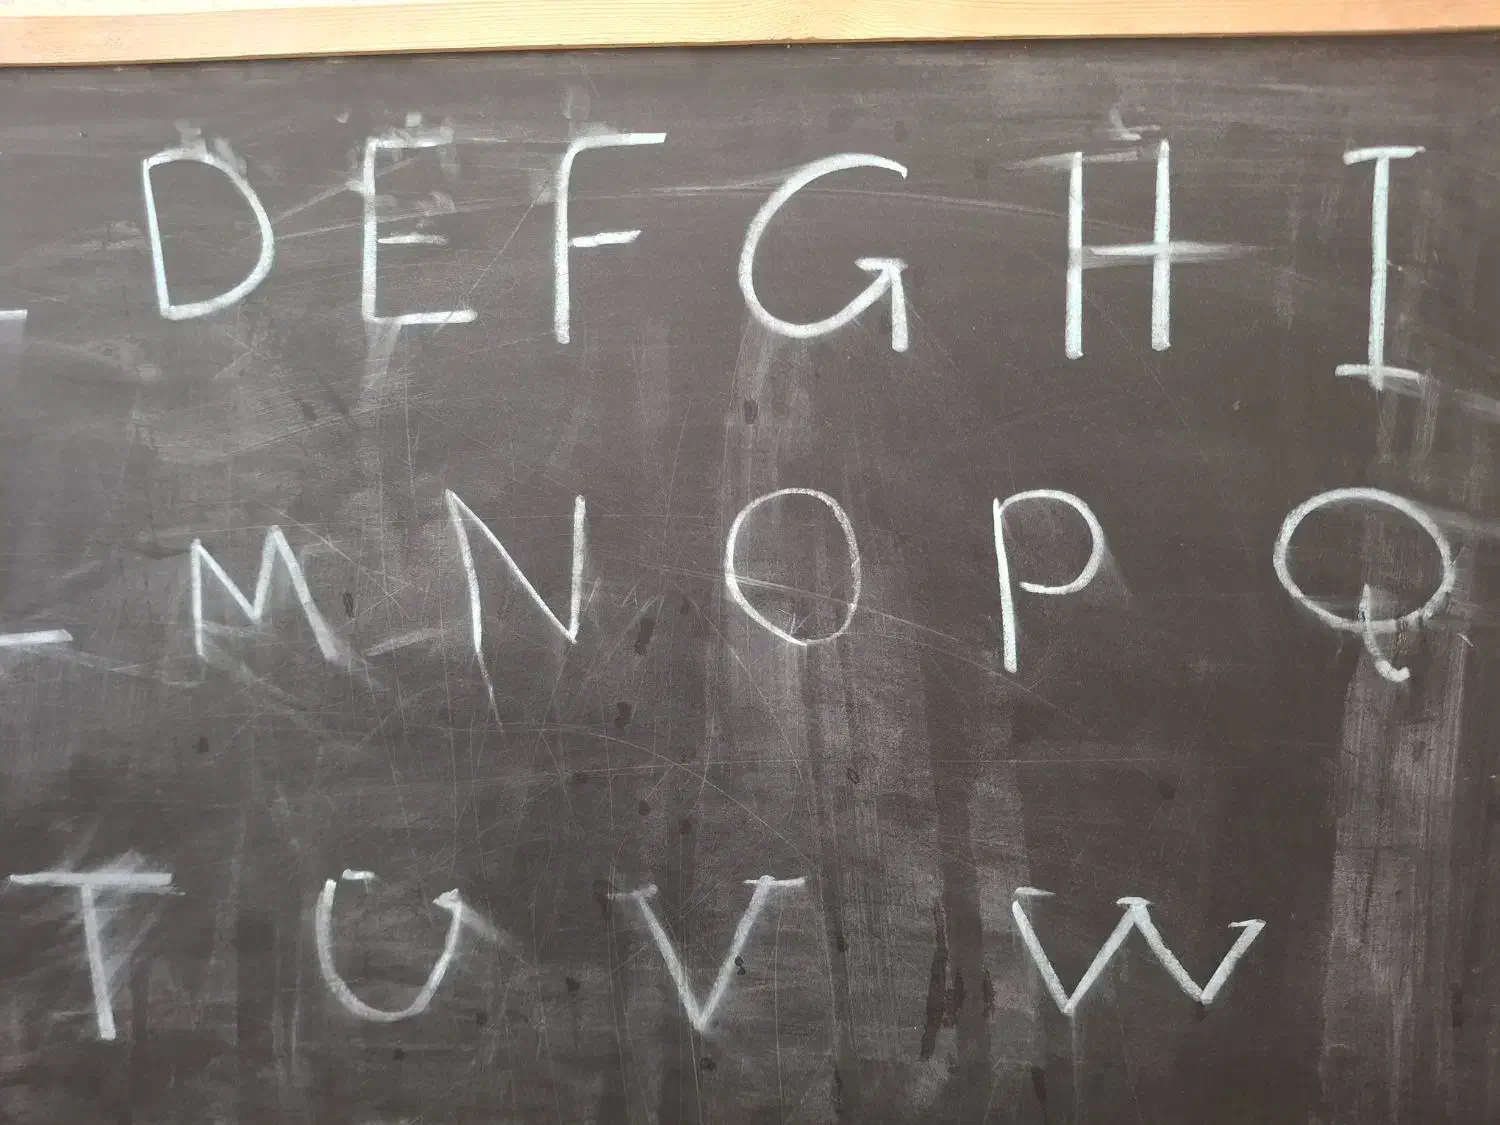 D E F G H I
M N O P Q
T U V W